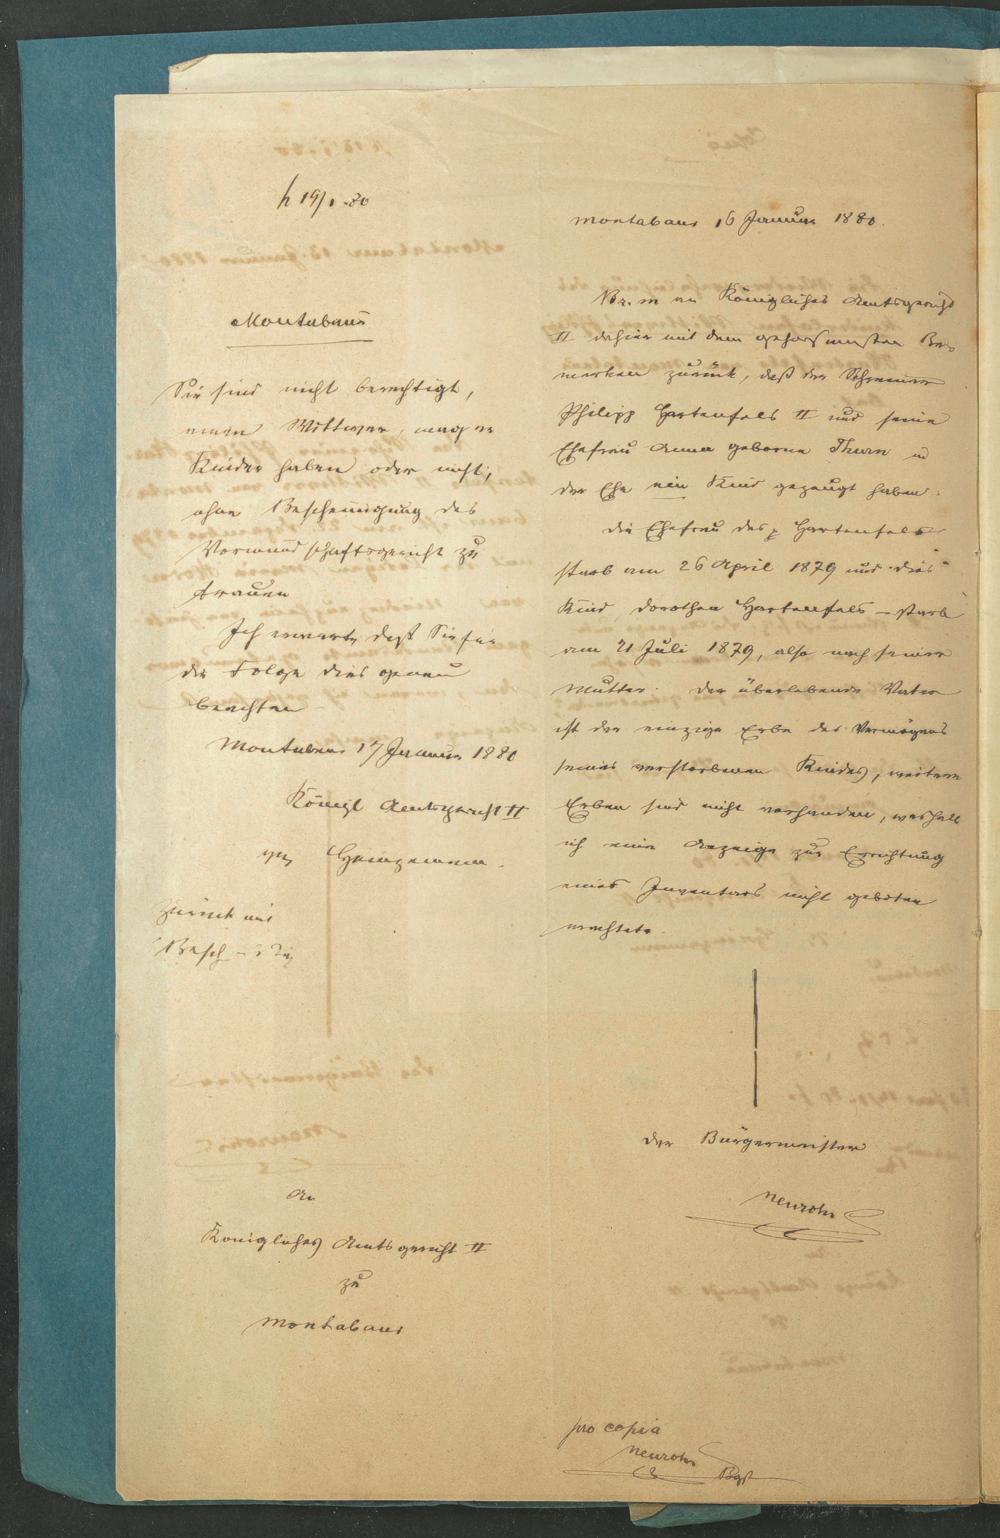 19/1.80
Montabaur
Sie sind nicht berechtigt,
einen Wittwer, mag er
Kinder haben oder nicht,
ohne Bescheinigung des
Vormundschaftsgericht zu
trauen
Ich erwarte, daß Sie für
die Folge dies genau
beachten
Montabaur 17 Januar 1880
Königl Amtsgericht II
gez
Zurück mit
An
Königliches Amtsgericht II
zu
Montabaur
Montabaur 16 Januar 1880.
Br. m an Königliches Amtsgericht
II dahier mit dem gehorsamsten Be-
merken zurück, daß der Schreiner
Philipp Hartenfels II und seine
Ehefrau Anna geborne Thurn in
der Ehe ein Kind gezeugt haben.
Die Ehefrau des p Hartenfels
starb am 26 April 1879 und das
Kind, Dorothea Hartenfels – starb
am 21 Juli 1879, also nach seiner
Mutter. Der überlebende Vater
ist der einzige Erbe des Vermögens
seines verstorbenen Kindes, weitere
Erben sind nicht vorhanden, weshalb
ich eine Anzeige zur Errichtung
eines Inventars nicht geboten
erachtete.
Der Bürgermeister
Neuroth
pro copia
Neuroth
Bgst